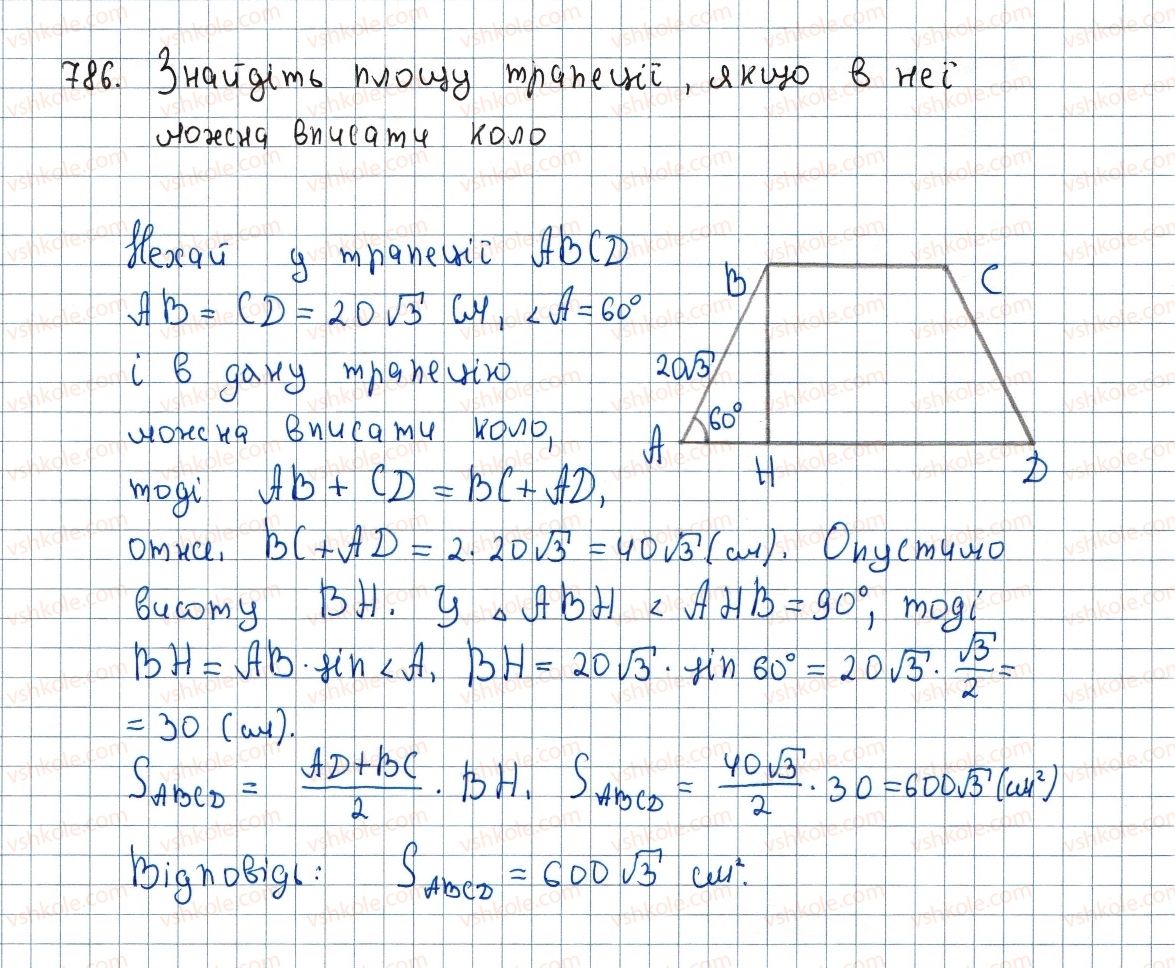 786. Знайдіть площу трапеції, якщо в неї
можна вписати коло
Нехай у трапеції ABCD
AB = CD = 20√3 см, ∠A = 60°
і в дану трапецію
можна вписати коло,
тоді AB + CD = BC + AD,
отже, BC + AD = 2 · 20√3 = 40√3 (см). Опустимо
висоту BH. У △ABH ∠AHB = 90°, тоді
BH = AB · sin∠A, BH = 20√3 · sin 60° = 20√3 · √3/2 =
= 30 (см).
S_ABCD = (AD + BC)/2 · BH. S_ABCD = 40√3/2 · 30 = 600√3 (см²)
Відповідь: S_ABCD = 600√3 см².
B
C
20√3
60°
A
H
D
vshkole.com